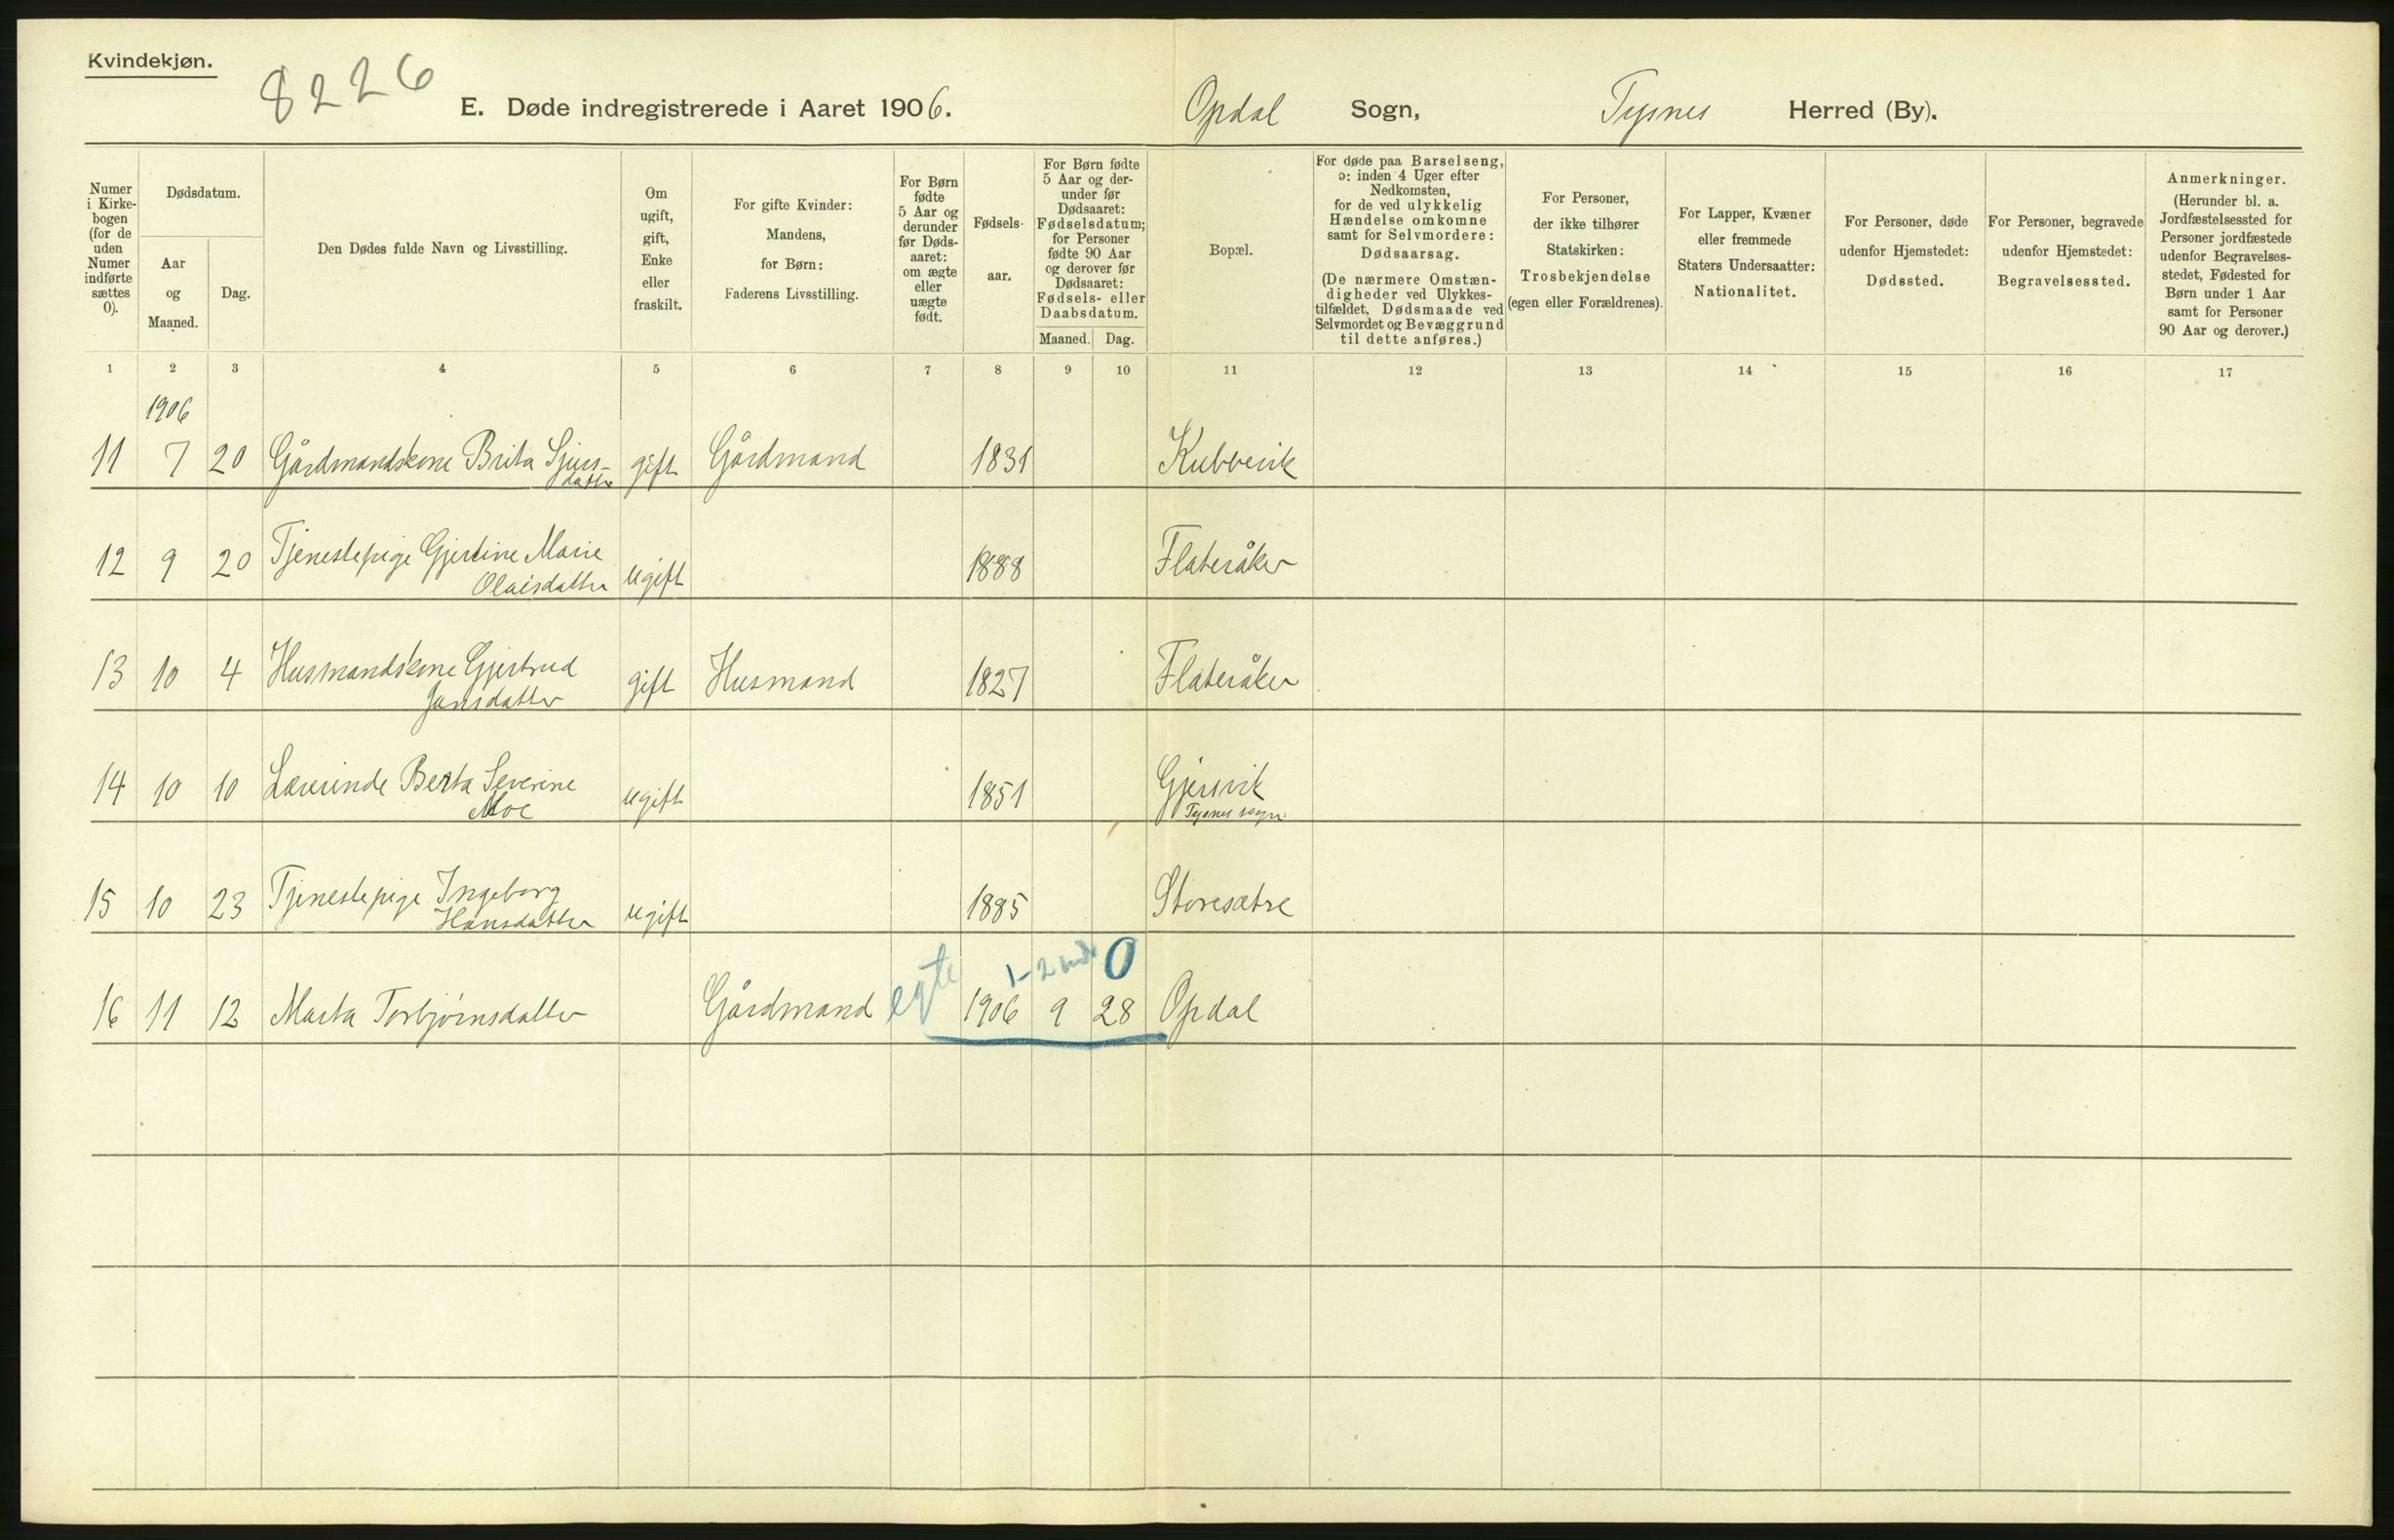 Kvindekjøn.
8226
E. Døde indregistrerede i Aaret 1906. Opdal Sogn, Tysnes Herred (By).
Numer i Kirke-bogen (for de uden Numer indførte sættes 0).
Dødsdatum.
Aar og Maaned.
Dag.
Den Dødes fulde Navn og Livsstilling.
Om ugift, gift, Enke eller fraskilt.
For gifte Kvinder: Mandens, for Børn: Faderens Livsstilling.
For Børn fødte 5 Aar og derunder før Døds-aaret: om ægte eller uægte født.
Fødsels-aar.
For Børn fødte 5 Aar og der-under før Dødsaaret: Fødselsdatum; for Personer fødte 90 Aar og derover før Dødsaaret: Fødsels- eller Daabsdatum.
Maaned. Dag.
Bopæl.
For døde paa Barselseng, ɔ: inden 4 Uger efter Nedkomsten, for de ved ulykkelig Hændelse omkomne samt for Selvmordere: Dødsaarsag.
(De nærmere Omstæn-digheder ved Ulykkes-tilfældet, Dødsmaade ved Selvmordet og Bevæggrund til dette anføres.)
For Personer, der ikke tilhører Statskirken: Trosbekjendelse (egen eller Forældrenes).
For Lapper, Kvæner eller fremmede Staters Undersaatter: Nationalitet.
For Personer, døde udenfor Hjemstedet: Dødssted.
For Personer, begravede udenfor Hjemstedet: Begravelsessted.
Anmerkninger. (Herunder bl. a. Jordfæstelsessted for Personer jordfæstede udenfor Begravelses-stedet, Fødested for Børn under 1 Aar samt for Personer 90 Aar og derover.)
1 2 3 4 5 6 7 8 9 10 11 12 13 14 15 16 17
1906
11 7 20 Gårdmandskone Brita Sjurs- gift Gårdmand 1831 Kubbevik
datter
12 9 20 Tjenestepige Gjertine Marie ugift 1888 Flateråker
Olaisdatter
13 10 4 Husmandskone Gjertrud gift Husmand 1827 Flateråker
Jansdatter
14 10 10 Lærerinde Berta Severine ugift 1851 Gjersvik
Moe Tysnes sogn
15 10 23 Tjenestepige Ingeborg ugift 1885 Storesætre
Hansdatter
1-2 mdr 0
16 11 12 Marta Torbjørnsdatter Gårdmand egte 1906 9 28 Opdal